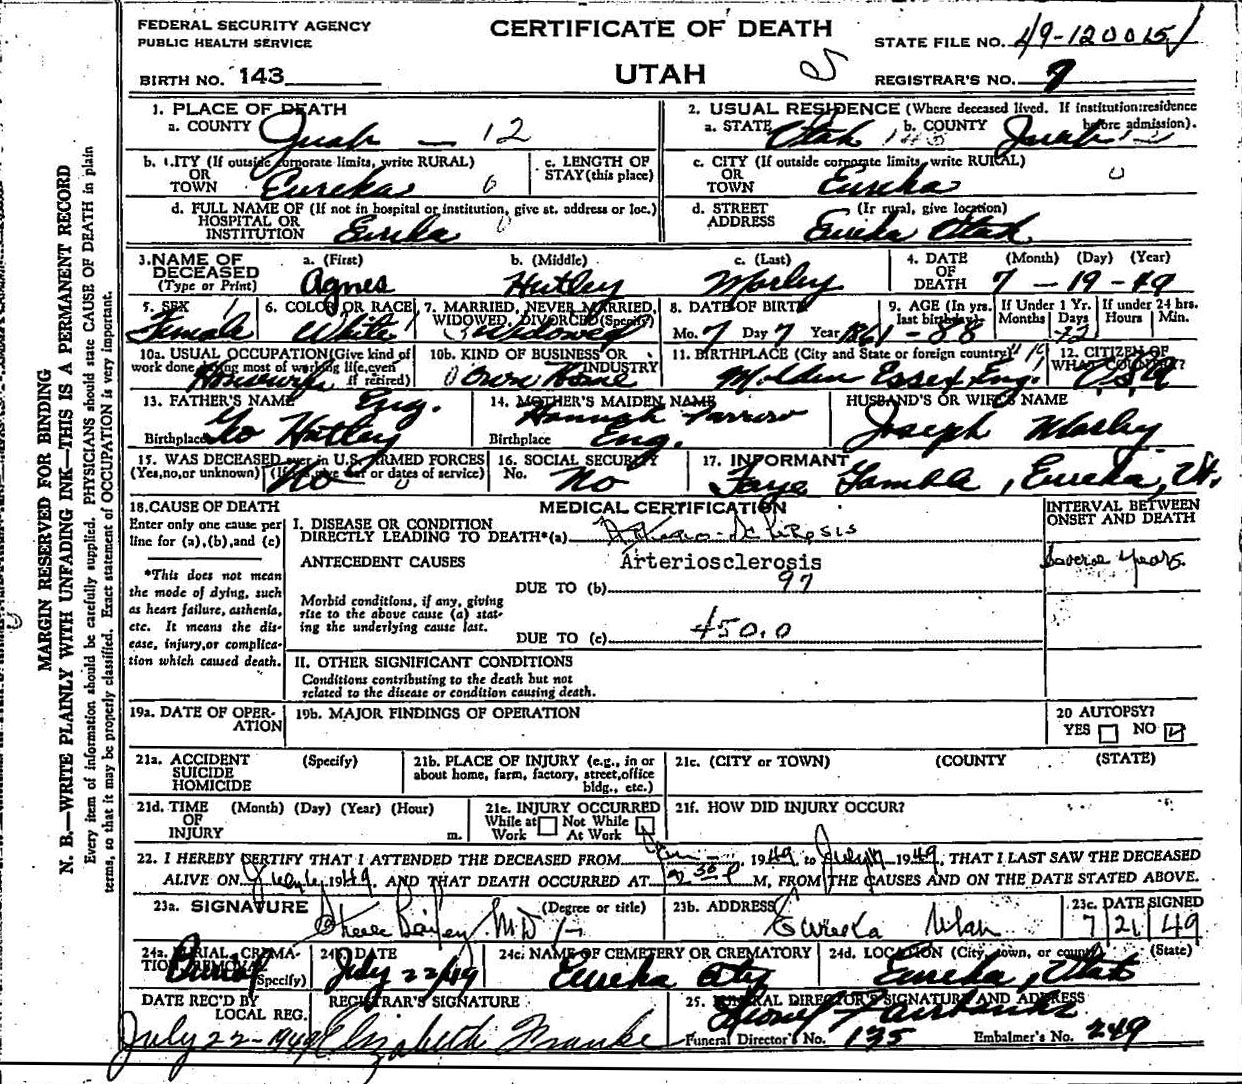 FEDERAL SECURITY AGENCY
PUBLIC HEALTH SERVICE
CERTIFICATE OF DEATH
STATE FILE NO. 49-120015
BIRTH NO. 143
UTAH
REGISTRAR'S NO. 7
MARGIN RESERVED FOR BINDING
N. B.—WRITE PLAINLY WITH UNFADING INK—THIS IS A PERMANENT RECORD
Every item of information should be carefully supplied. PHYSICIANS should state CAUSE OF DEATH in plain
terms, so that it may be properly classified. Exact statement of OCCUPATION is very important.
1. PLACE OF DEATH
a. COUNTY Juab - 12
2. USUAL RESIDENCE (Where deceased lived. If institution:residence
before admission).
a. STATE Utah 143 b. COUNTY Juab
b. CITY (If outside corporate limits, write RURAL)
OR
TOWN Eureka 0
c. LENGTH OF
STAY (this place)
c. CITY (If outside corporate limits, write RURAL)
OR
TOWN Eureka 0
d. FULL NAME OF (If not in hospital or institution, give st. address or loc.)
HOSPITAL OR
INSTITUTION Eureka 0
d. STREET (If rural, give location)
ADDRESS Eureka Utah
3. NAME OF DECEASED
(Type or Print)
a. (First) Agnes
b. (Middle) Hutley
c. (Last) Morley
4. DATE OF DEATH (Month) (Day) (Year)
7 - 19 - 49
5. SEX Female
6. COLOR OR RACE White
7. MARRIED, NEVER MARRIED,
WIDOWED, DIVORCED (Specify) Widowed
8. DATE OF BIRTH
Mo. 7 Day 7 Year 1861
9. AGE (In yrs. last birthday) - 88
If Under 1 Yr. Months Days 12
If under 24 hrs. Hours Min.
10a. USUAL OCCUPATION (Give kind of
work done during most of working life, even
if retired) Housewife
10b. KIND OF BUSINESS OR
INDUSTRY Own Home
11. BIRTHPLACE (City and State or foreign country)
Molden Essex Eng.
12. CITIZEN OF
WHAT COUNTRY? USA
13. FATHER'S NAME
Geo Hutley
Birthplace Eng.
14. MOTHER'S MAIDEN NAME
Hannah Farrow
Birthplace Eng.
HUSBAND'S OR WIFE'S NAME
Joseph Morley
15. WAS DECEASED ever in U.S. ARMED FORCES
(Yes, no, or unknown) (If yes, give war or dates of service)
No
16. SOCIAL SECURITY
No. No
17. INFORMANT
Faye Gamble, Eureka, Ut.
18. CAUSE OF DEATH
Enter only one cause per
line for (a), (b), and (c)
*This does not mean
the mode of dying, such
as heart failure, asthenia,
etc. It means the dis-
ease, injury, or complica-
tion which caused death.
MEDICAL CERTIFICATION
INTERVAL BETWEEN
ONSET AND DEATH
I. DISEASE OR CONDITION
DIRECTLY LEADING TO DEATH*(a)
ANTECEDENT CAUSES
Arteriosclerosis
Several years.
DUE TO (b) 97
Morbid conditions, if any, giving
rise to the above cause (a) stat-
ing the underlying cause last.
DUE TO (c) 450.0
II. OTHER SIGNIFICANT CONDITIONS
Conditions contributing to the death but not
related to the disease or condition causing death.
19a. DATE OF OPER-
ATION
19b. MAJOR FINDINGS OF OPERATION
20 AUTOPSY?
YES NO
21a. ACCIDENT (Specify)
SUICIDE
HOMICIDE
21b. PLACE OF INJURY (e.g., in or
about home, farm, factory, street, office
bldg., etc.)
21c. (CITY or TOWN) (COUNTY (STATE)
21d. TIME (Month) (Day) (Year) (Hour)
OF
INJURY m.
21e. INJURY OCCURRED
While at Work Not While At Work
21f. HOW DID INJURY OCCUR?
22. I HEREBY CERTIFY THAT I ATTENDED THE DECEASED FROM Jan, 1949, to July 1949, THAT I LAST SAW THE DECEASED
ALIVE ON July 1949. AND THAT DEATH OCCURRED AT 2 30 P M, FROM THE CAUSES AND ON THE DATE STATED ABOVE.
23a. SIGNATURE (Degree or title)
Steele Bailey MD
23b. ADDRESS
Eureka Utah
23c. DATE SIGNED
7/21/49
24a. BURIAL, CREMA-
TION, REMOVAL
(Specify) Burial
24b. DATE
July 22/49
24c. NAME OF CEMETERY OR CREMATORY
Eureka City
24d. LOCATION (City, town, or county) (State)
Eureka, Utah
DATE REC'D BY
LOCAL REG.
July 22-1949
REGISTRAR'S SIGNATURE
Elizabeth Franke
25. FUNERAL DIRECTOR'S SIGNATURE AND ADDRESS
Lionel Fairbanks
Funeral Director's No. 135 Embalmer's No. 249